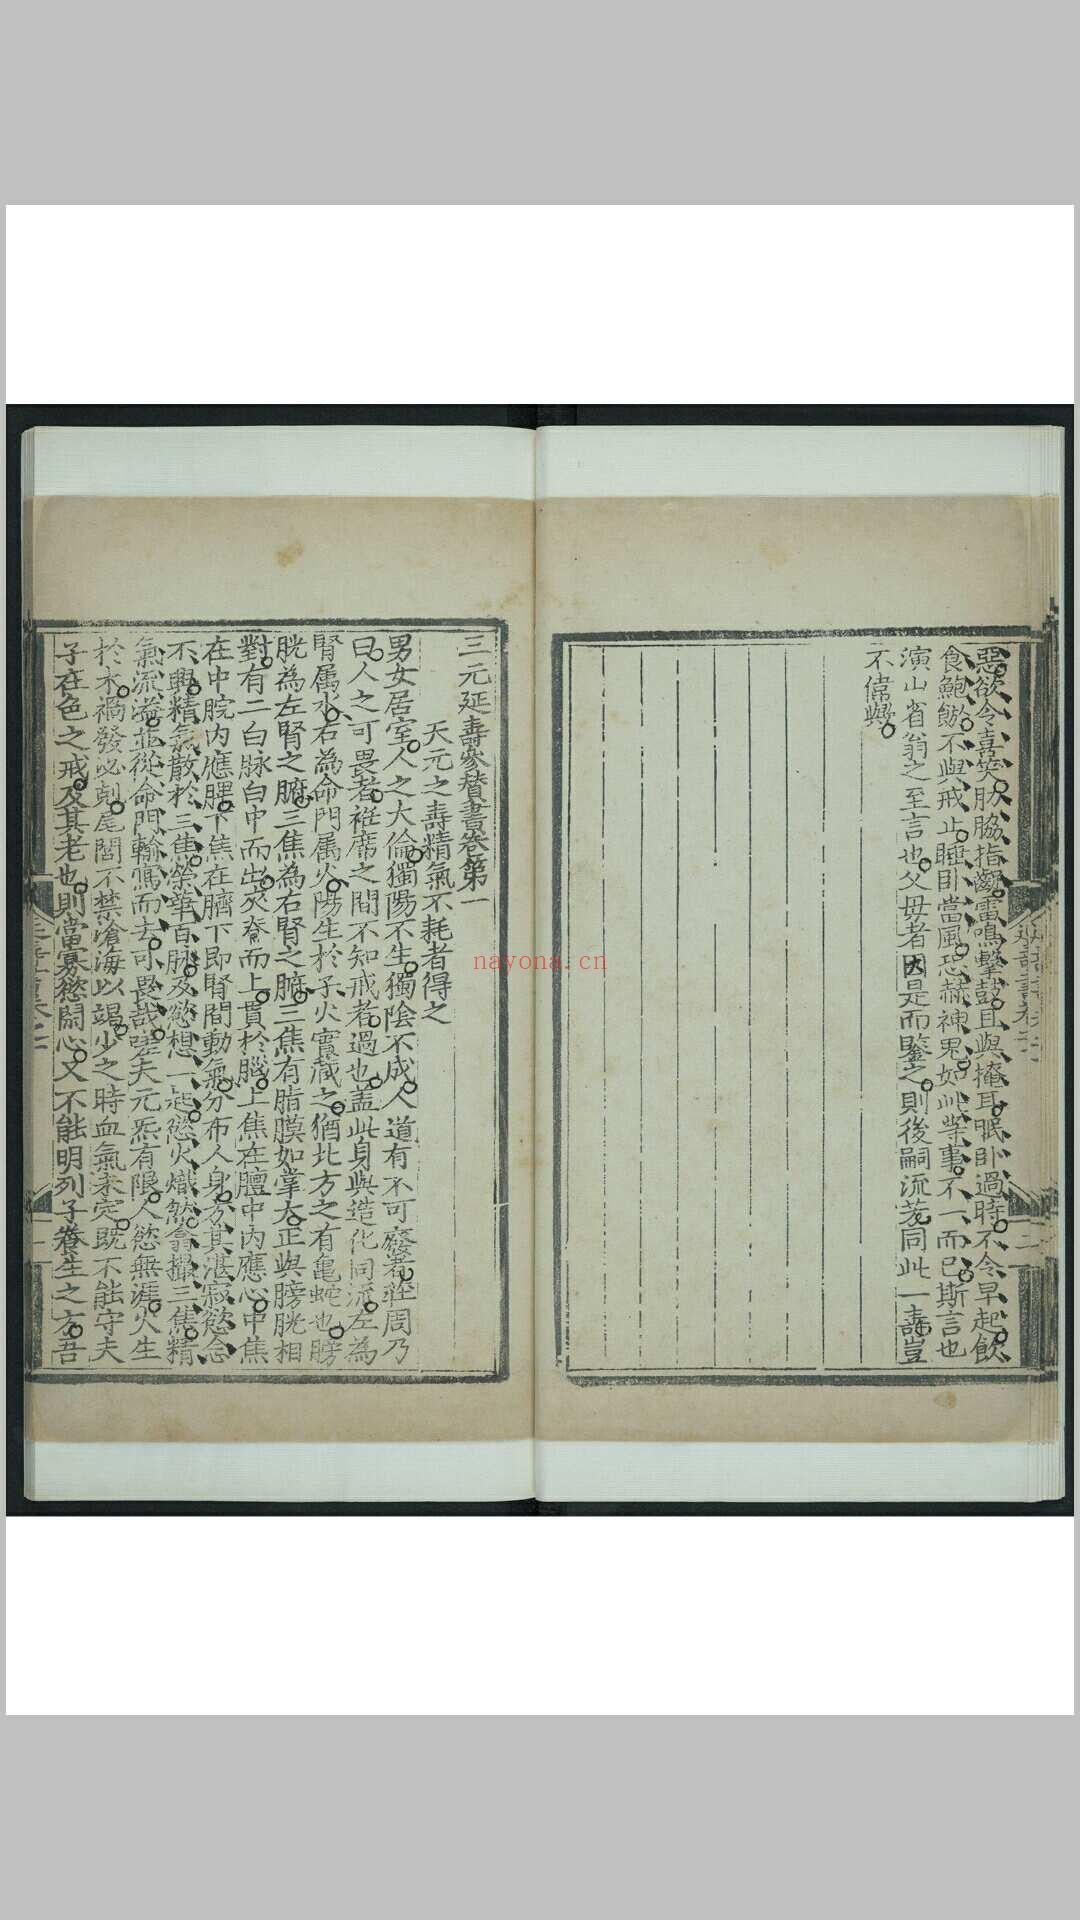 惡欲令喜笑肋脇指齫雷鳴擊鼓且與掩耳眠卧過時不令早起飲
食鮑飫不與戒止睡卧當風恐赫神鬼如此䓁事不一而已斯言也
演山省翁之至言也父母者因是而鑒之則後嗣流芳同此一壽豈
不偉歟
三元延壽參贊書卷第一
天元之壽精氣不耗者得之
男女居室人之大倫獨陽不生獨陰不成人道有不可廢者莊周乃
曰人之可畏者袵席之間不知戒者過也盖此身與造化同流左為
腎属水右為命門属火陽生於子火實藏之猶北方之有亀蛇也膀
胱為左腎之腑三焦為右腎之腑三焦有脂膜如掌大正與膀胱相
對有二白脉自中而出夾脊而上貫於腦上焦在膻中内應心中焦
在中脘内應脾下焦在臍下即腎間動氣分布人身方其湛寂慾念
不興精氣散於三焦榮華百脉及慾想一起慾火熾然翕撮三焦精
氣流溢並從命門輸寫而去可畏哉嗟夫元炁有限人慾無涯火生
於木禍發必剋尾閭不禁滄海以竭少之時血氣未定既不能守夫
子在色之戒及其老也則當寡慾閑心又不能明列子養生之方吾
nayona.cn